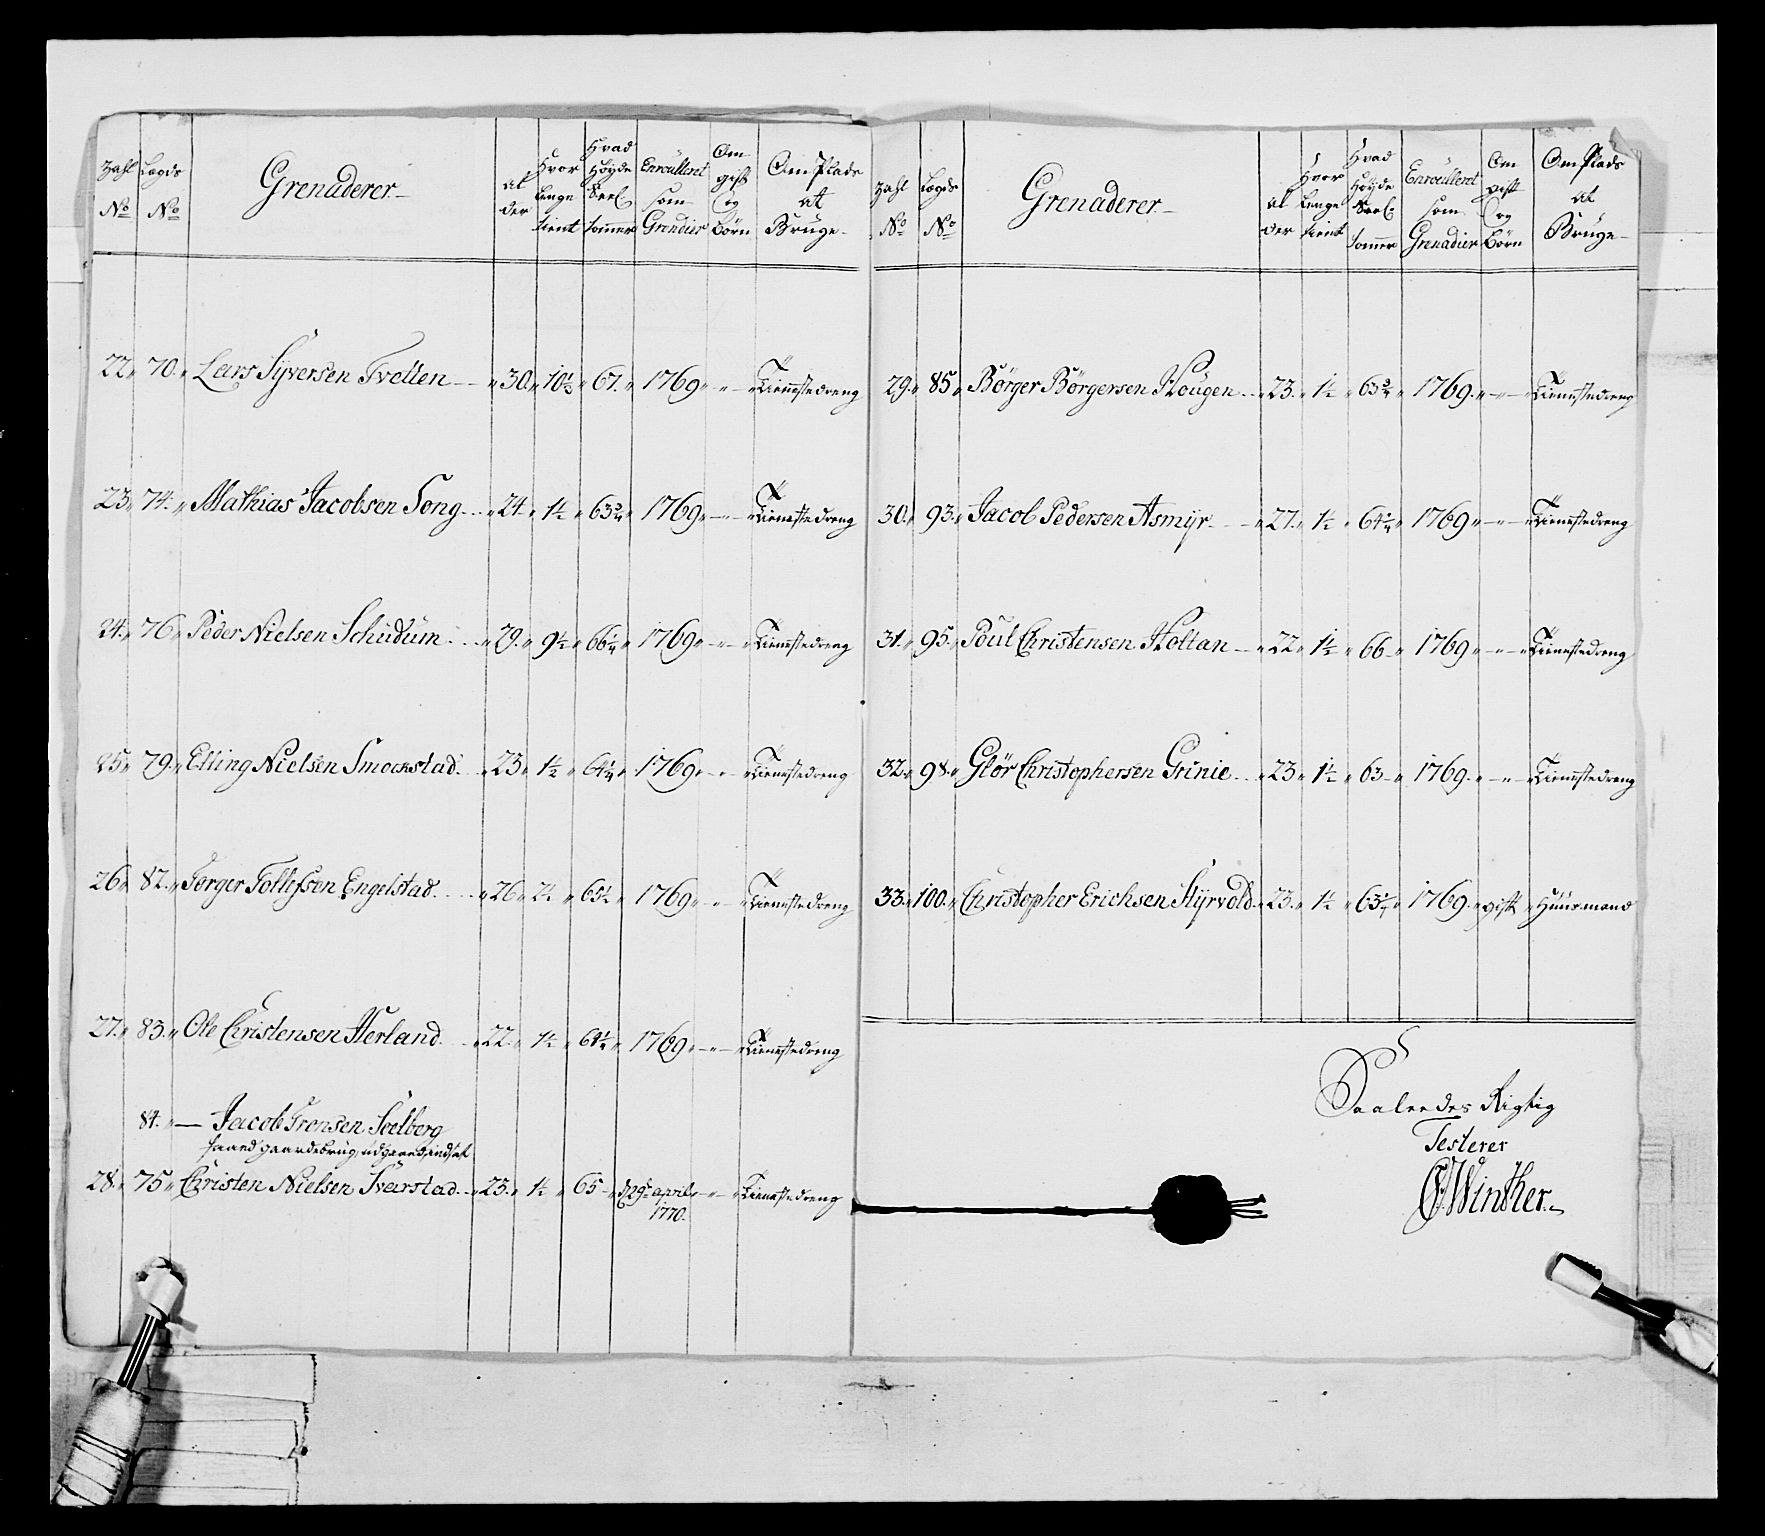 Zahl No Lægds No Grenaderer Al der Hvor lenge tient Hvad Høyde Sael. tommer Enroulleret som Grendier Om gift og Børn Om Plads at Bruge
22 70. Lars Syversen Tvetten 30. 10½ 67. 1769 Tienestedreng
23 74. Mathias Jacobsen Song 24 1½ 63¾ 1769 Tienestedreng
24 76 Peder Nielsen Schudum 29. 9½ 66¼ 1769 Tienestedreng
25 79. Elling Nielsen Smockstad 23 1½ 64¼ 1769 Tienestedreng
26 82. Torger Tollefsen Engelstad 26 2½ 65½ 1769 Tienestedreng
27 83. Ole Christensen Herland 22 1½ 64½ 1769 Tienestedreng
84. Jacob Tronsen Soelberg
faaed gaardebrug, udgaaed, indsat
28. 75 Christen Nielsen Svarstad 23. 1½ 65 d 29de april 1770. Tienestedreng
Zahl No Lægds No Grenaderer Al der Hvor lenge tient Hvad Høyde Sael. tommer Enroulleret som Grenadier Om gift og Børn Om Plads at Bruge
29. 85 Børger Børgersen Hougen 23. 1½ 63¾ 1769. Tienestedreng
30. 93. Jacob Pedersen Asmyr 27. 1½ 64¼ 1769 Tienestedreng
31. 95. Poul Christensen Holtan 22 1½ 66 1769 Tienestedreng
32 98. Glør Christophersen Grinie 23 1½ 63 1769. Tienestedreng
33. 100. Christopher Erichsen Styrvold 23. 1½ 63¼ 1769. gift Huusmand
Saaleedes Rigtig
Testerer
Winther.